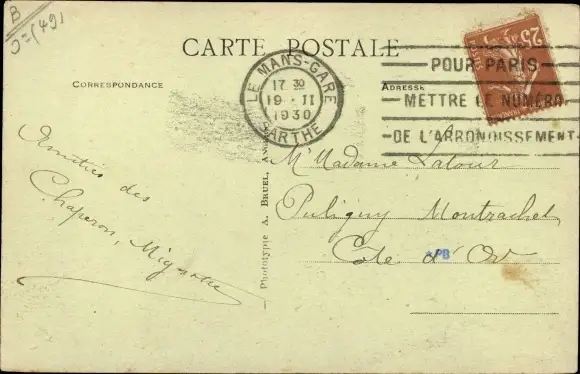 B
CARTE POSTALE
CORRESPONDANCE
ADRESSE
LE MANS-GARE
17 30
19 - II
1930
SARTHE
25
POUR PARIS
METTRE LE NUMÉRO
DE L'ARRONDISSEMENT
Amitiés des
Chaperon, Mignotte
Phototypie A. BRUEL,
Mr Madame Latour
Puligny Montrachet
Côte d'Or
PB